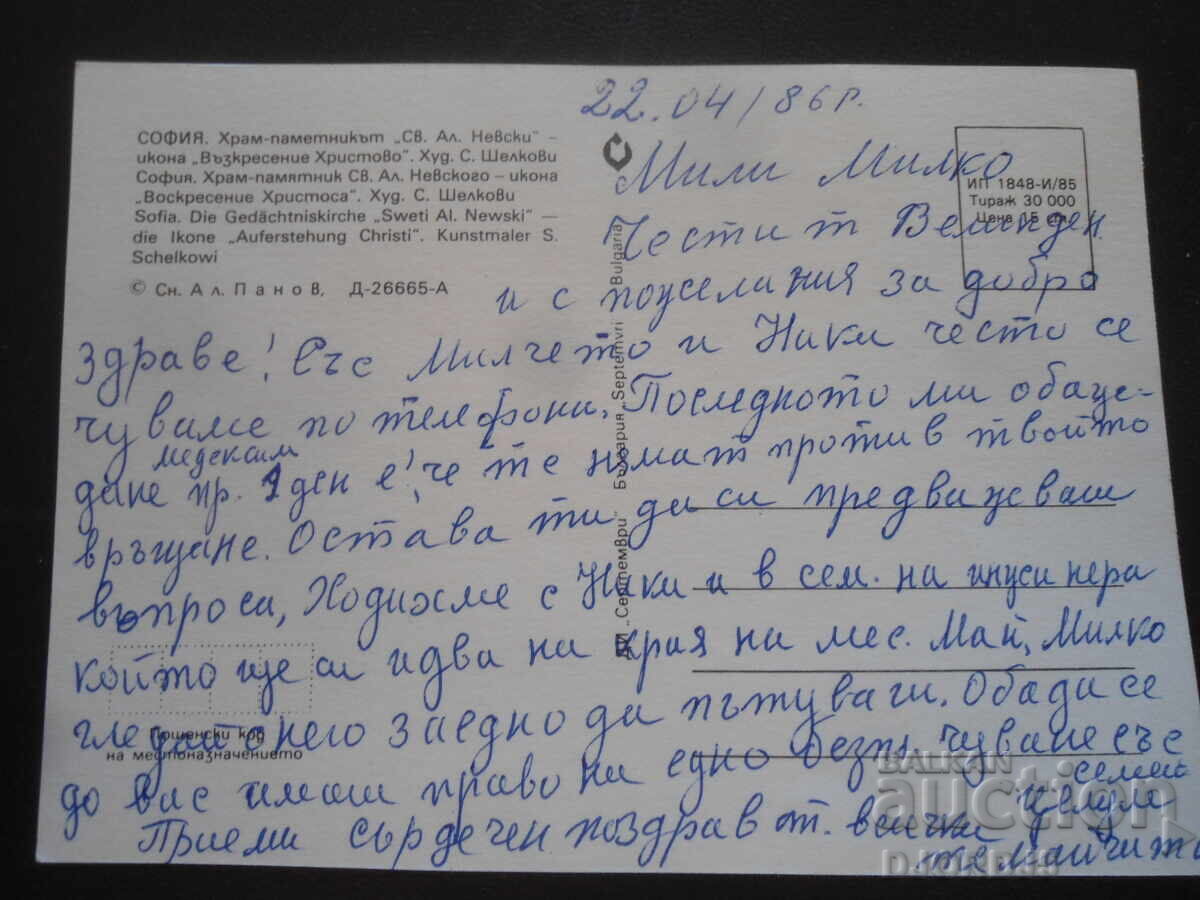 22.04/86г.
СОФИЯ. Храм-паметникът „Св. Ал. Невски" –
икона „Възкресение Христово". Худ. С. Шелкови
София. Храм-памятник Св. Ал. Невского – икона
„Воскресение Христоса". Худ. С. Шелкови
Sofia. Die Gedächtniskirche „Sweti Al. Newski" —
die Ikone „Auferstehung Christi". Kunstmaler S.
Schelkowi
© Сн. Ал. Панов, Д-26665-А
ИП 1848-И/85
Тираж 30 000
Цена 15 ст.
ДИ „Септември" България „Septemvri" Bulgaria
Мили Милко
Честит Великден
и с пожелания за добро
здраве! Със Милчето и Ники често се
чуваме по телефони. Последното ми обаж-
дане пр. 1 ден е, че те нямат против твойто
врѣщане. Остава ти да си предважеваш
въпроси, Ходихме с Ники и в сем. на
който ще си идва на края на мес. Май, Милко
гледай с него заедно да пътуваги. Обади се
до вас имаш право на едно безпл. чуване със
семей
Приеми сърдечен поздрав от всички целум
те майчито
Пощенски код
на местоназначението
BALKAN
auction